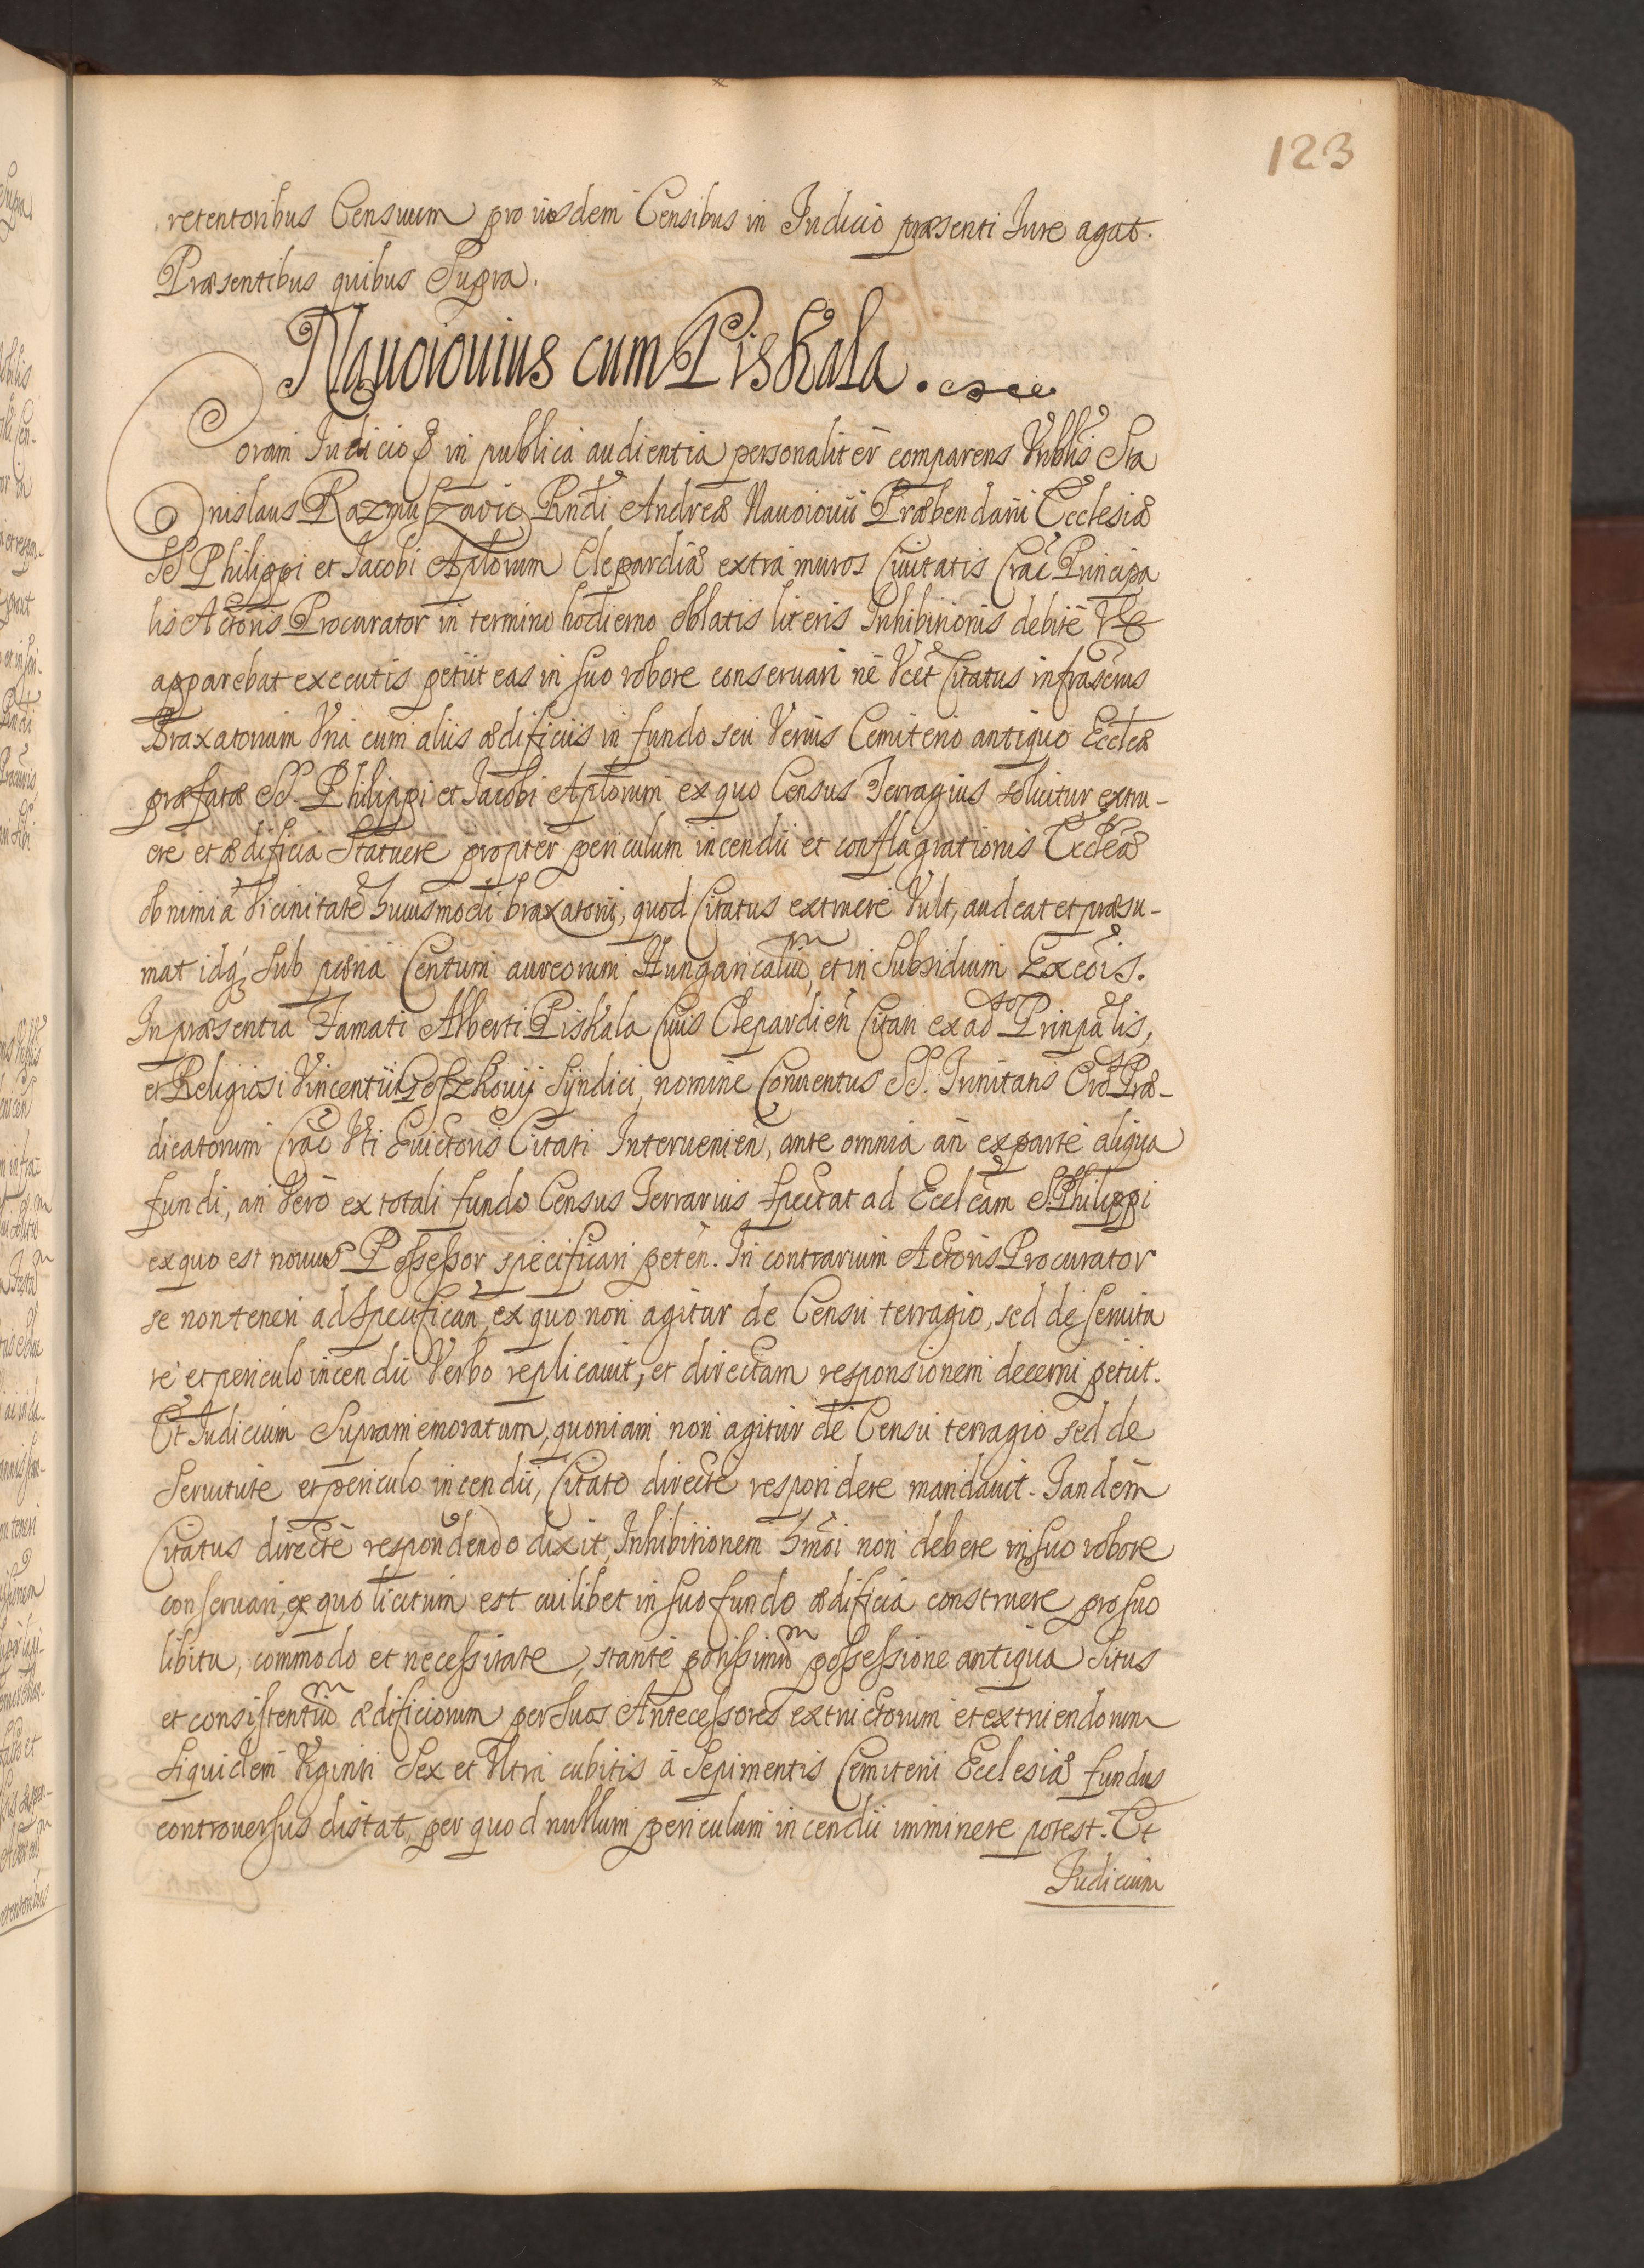 123
retentoribus Censuum pro iisdem Censibus in Iudicio præsenti Iure agat.
Præsentibus quibus Supra.
Nauoiouius cum Piskala.
Coram Iudicio & in publica audientia personaliter comparens Nblis Sta
nislaus Razmuszowic Rndi Andreæ Nauoiouii Præbendarii Ecclesiæ
SS Philippi et Iacobi Aplorum Clepardiæ extra muros Ciuitatis Crac Principa
lis Actoris Procurator in termino hodierno oblatis literis Inhibitionis debite Vt
apparebat executis petiit eas in suo robore conseruari ne Vcet Citatus infrascrus
Braxatorium Vna cum aliis ædificiis in fundo seu Verius Cemiterio antiquo Eccleæ
præfatæ SS. Philippi et Iacobi Aplorum ex quo Census Terragius soluitur extru-
ere et ædificia Statuere propter periculum incendii et conflagrationis Eccleæ
ob nimia Vicinitate huiusmodi braxatorii, quod Citatus extruere Vult, audeat et præsu-
mat idq; sub pæna Centum aureorum Hungaricaliu, et in Subsidium Excois.
In præsentia Famati Alberti Piskala Ciuis Clepardien Citati ex adso Prinpalis,
et Religiosi Vincentii Leszkouij Syndici, nomine Conuentus SS. Trinitatis Ord Præ-
dicatorum Crac Vti Euictoris Citati Interuenien, ante omnia an ex parte aliqua
fundi, an Vero ex totali fundo Census Terrarius spectat ad Ecclcam S. Philippi
ex quo est nouus Possessor specificari peten. In contrarium Actoris Procurator
se non teneri ad specifican, ex quo non agitur de Censu terragio, sed de seruitu
te et periculo incendii Verbo replicauit, et directam responsionem decerni petiit.
Et Iudicium Supramemoratum, quoniam non agitur de Censu terragio sed de
Seruitute et periculo incendii, Citato directe respondere mandauit. Tandem
Citatus directe respondendo dixit, Inhibitionem hmoi non debere in suo robore
conseruari, ex quo licitum est cuilibet in suo fundo ædificia construere pro suo
libitu, commodo et necessitate, stante potissimu possessione antiqua Situs
et consistentiu ædificiorum per suos Antecessores extructorum et extruendorum
Siquidem Viginti Sex et Vltra cubitis a Sepimentis Cemiterii Ecclesiæ fundus
controuersus distat, per quod nullum periculum incendii imminere potest. Et
Iudicium